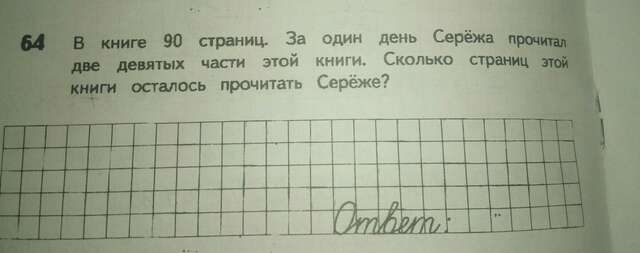 64 В книге 90 страниц. За один день Серёжа прочитал
две девятых части этой книги. Сколько страниц этой
книги осталось прочитать Серёже?
Ответ: